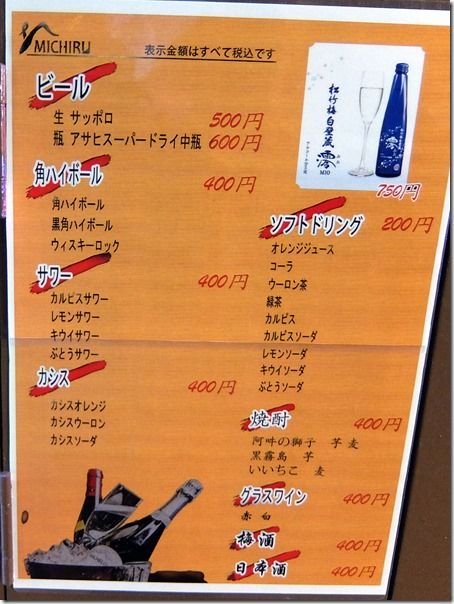 MICHIRU
表示金額はすべて税込です
ビール
生 サッポロ 500円
瓶 アサヒスーパードライ中瓶 600円
角ハイボール 400円
角ハイボール
黒角ハイボール
ウィスキーロック
サワー 400円
カルピスサワー
レモンサワー
キウイサワー
ぶどうサワー
カシス 400円
カシスオレンジ
カシスウーロン
カシスソーダ
松竹梅白壁蔵
澪
みお
MIO
750円
ソフトドリング 200円
オレンジジュース
コーラ
ウーロン茶
緑茶
カルピス
カルピスソーダ
レモンソーダ
キウイソーダ
ぶどうソーダ
焼酎 400円
阿吽の獅子 芋 麦
黒霧島 芋
いいちこ 麦
グラスワイン 400円
赤 白
梅酒 400円
日本酒 400円